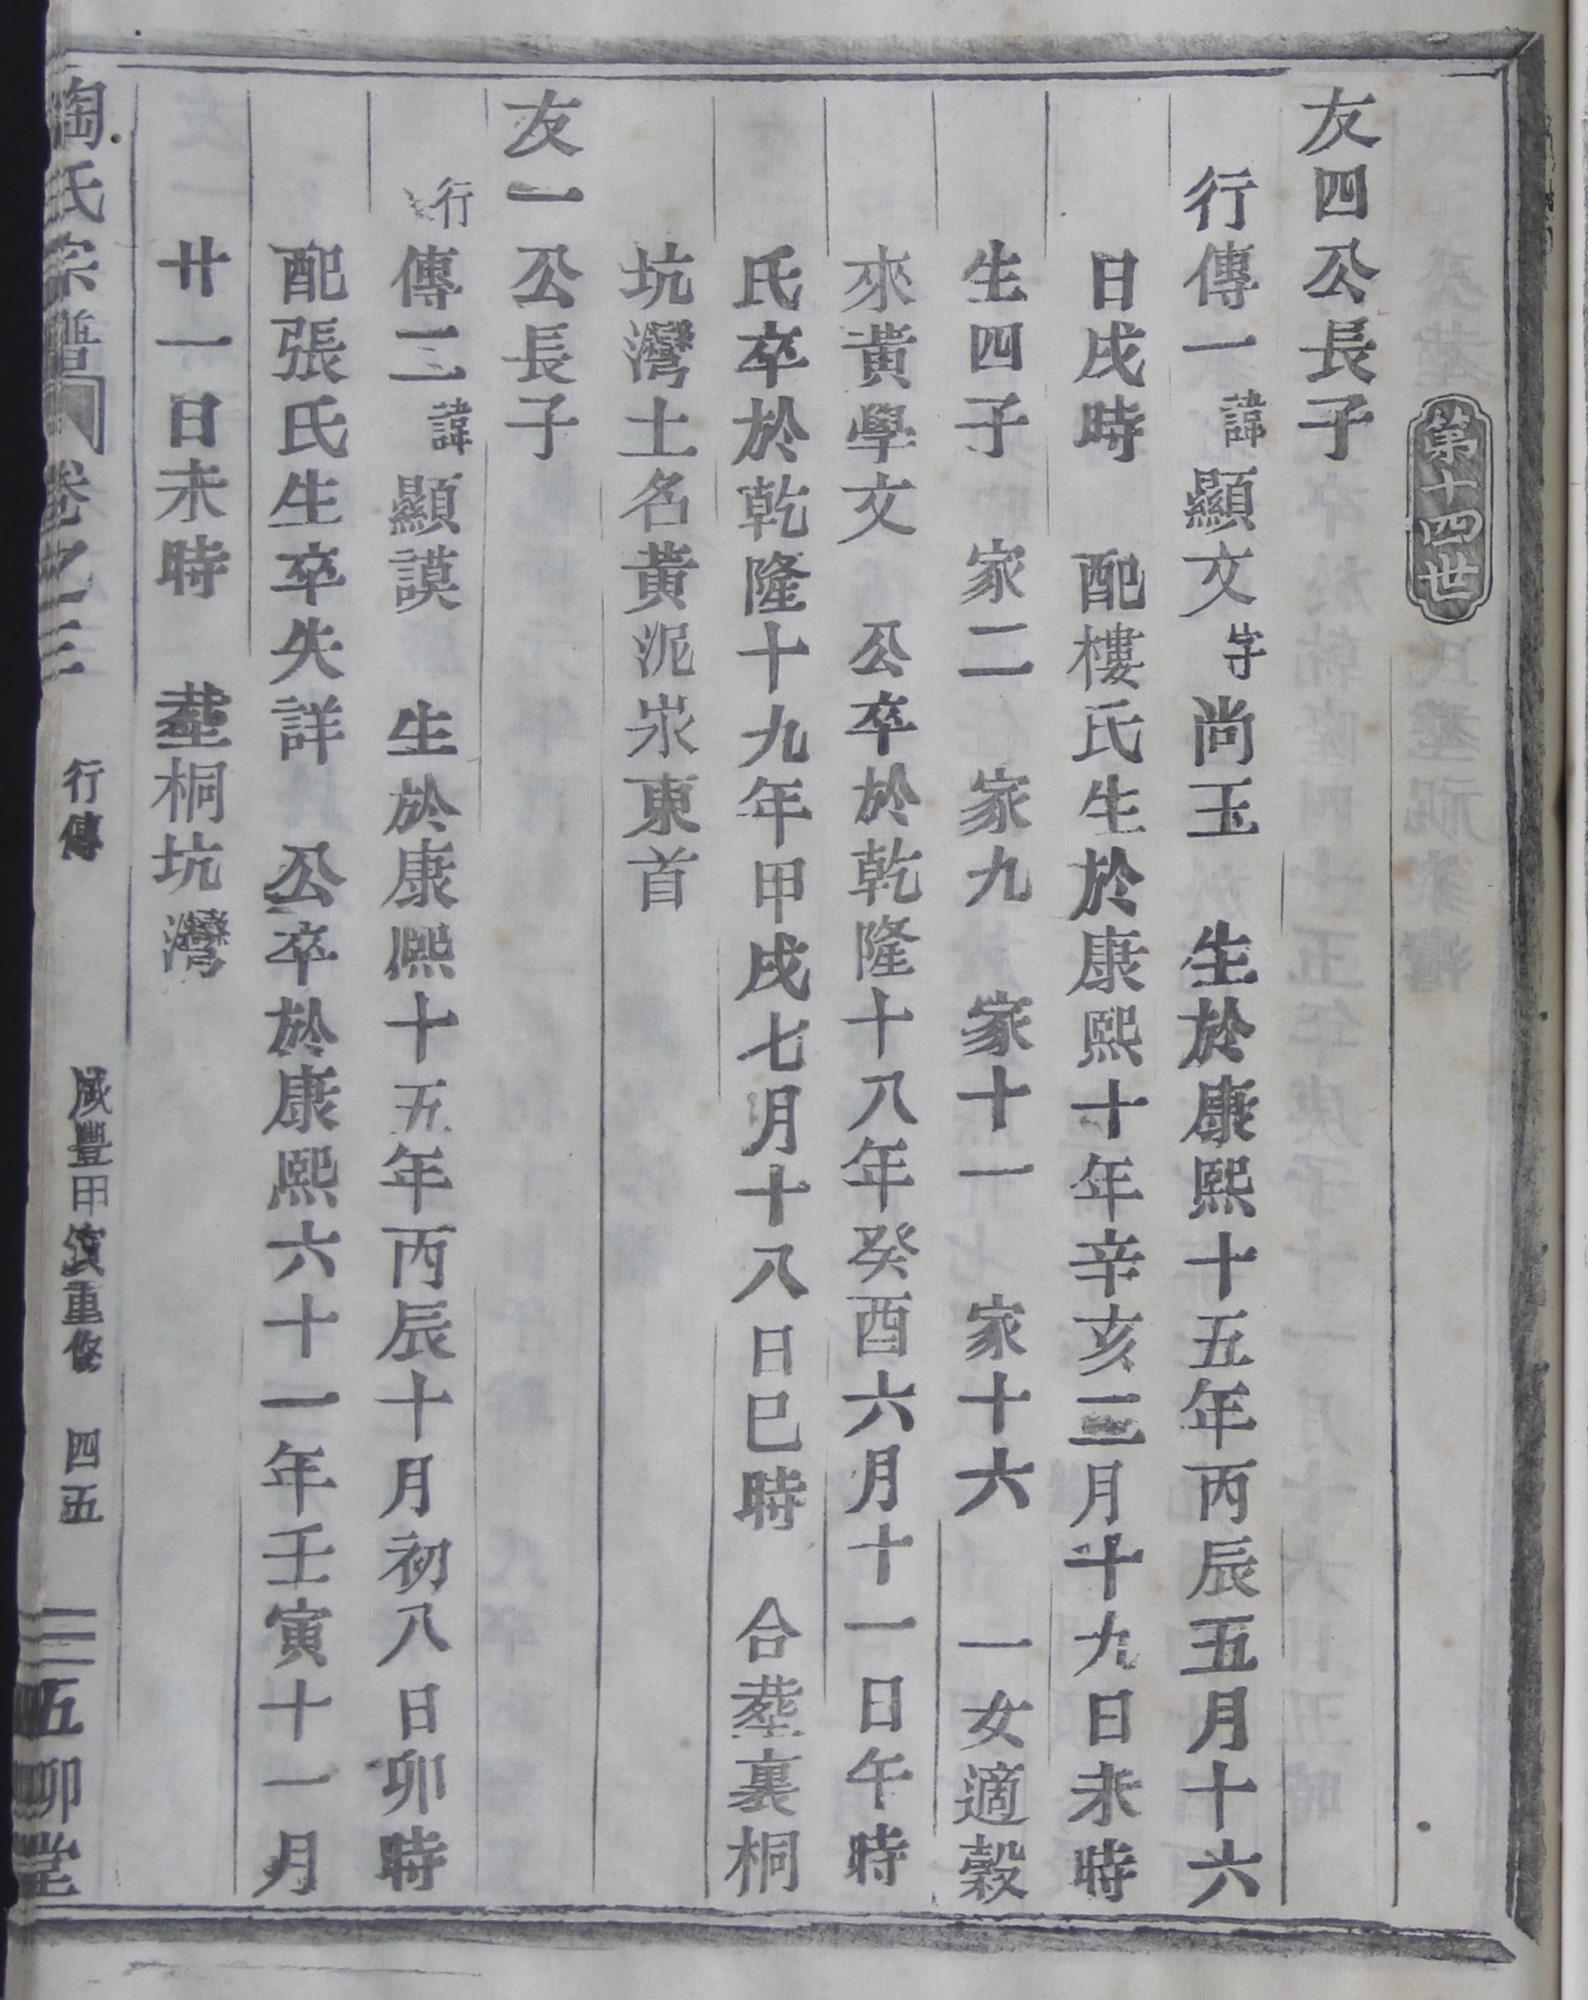 第十四世
友四公長子
行傳一諱顯文字尚玉　生於康熙十五年丙辰五月十六
日戌時　配樓氏生於康熙十年辛亥三月十九日未時
生四子　家二　家九　家十一　家十六　一女適穀
來黃學文　公卒於乾隆十八年癸酉六月十一日午時
氏卒於乾隆十九年甲戌七月十八日巳時　合塟裏桐
坑灣土名黃泥氺東首
友一公長子
行傳二諱顯謨　生於康熙十五年丙辰十月初八日卯時
配張氏生卒失詳　公卒於康熙六十一年壬寅十一月
廿一日未時　塟桐坑灣
陶氏宗譜　卷之三　行傳　咸豐甲寅重修　四五　五柳堂